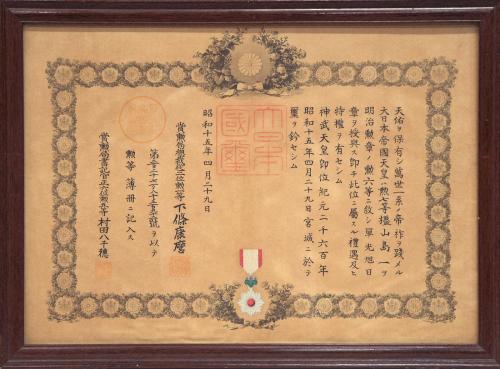 天佑ヲ保有シ萬世一系ノ帝祚ヲ踐メル
大日本帝國天皇ハ勲七等 山島一ヲ
明治勲章ノ勲六等ニ敍シ單光旭日
章ヲ授與ス卽チ此位ニ屬スル禮遇及ヒ
特權ヲ有セシム
神武天皇卽位紀元二千六百年
昭和十五年四月二十九日宮城ニ於テ
璽ヲ鈐セシム
大日本
國璽
昭和十五年四月二十九日
賞勲局總裁從三位勲 等下條康麿
第 號ヲ以テ
勲等簿册ニ記入ス
賞勲局書記官正 位勲 等村田八千穂